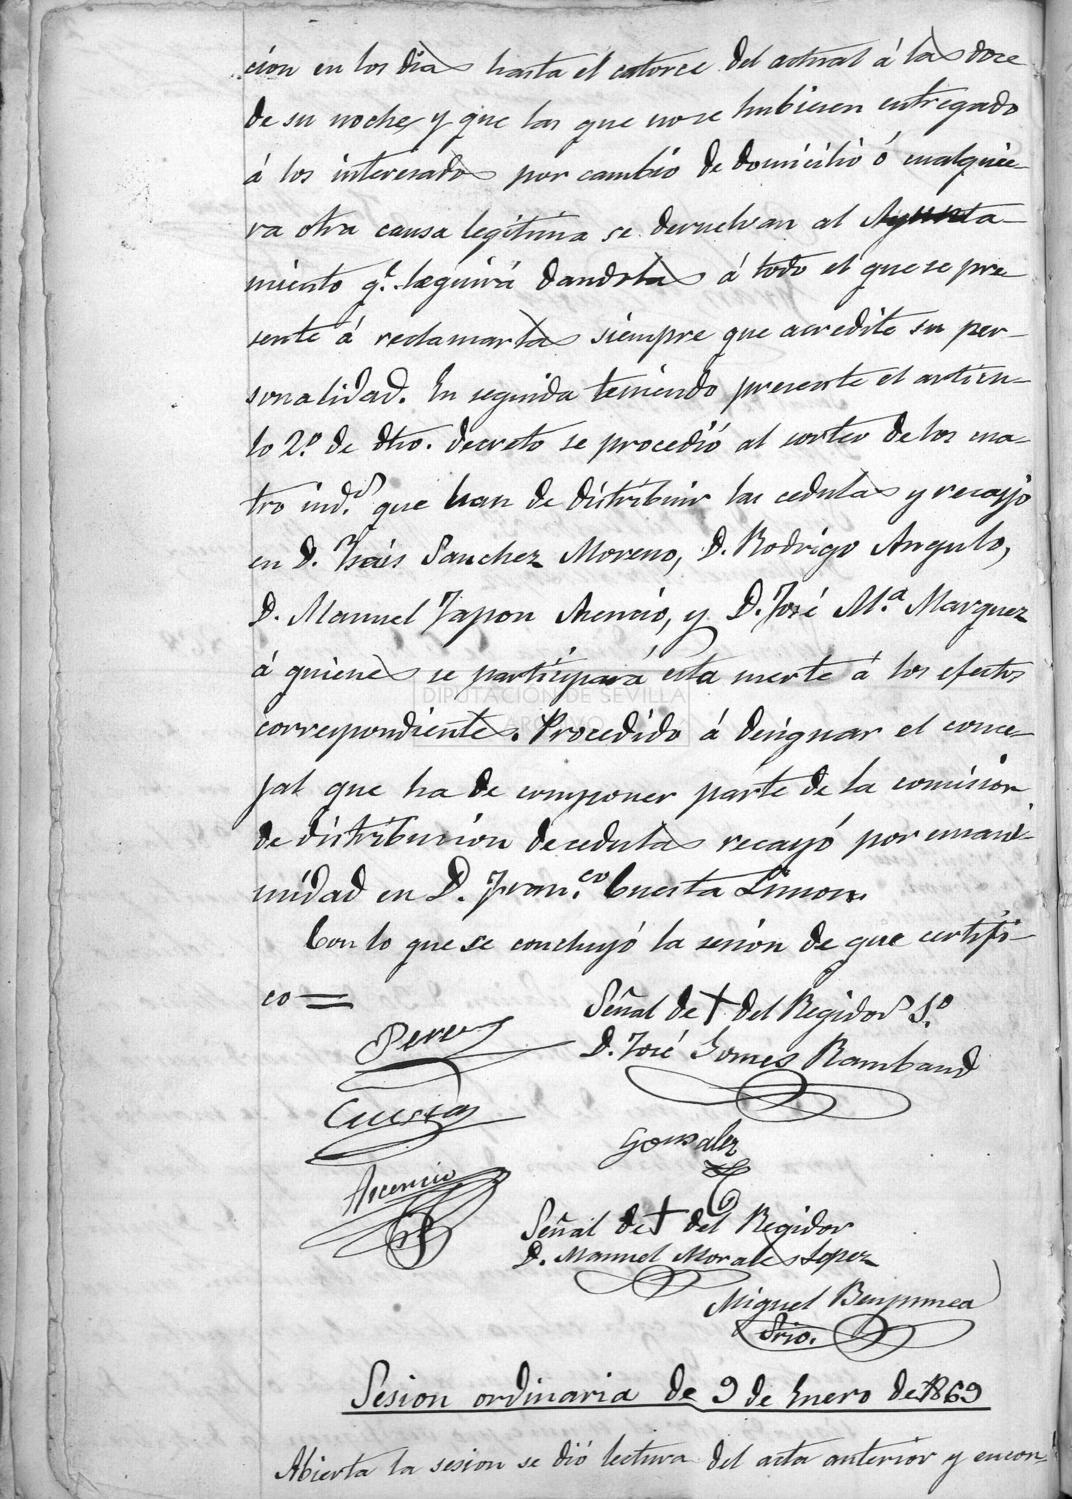 cion en los dias hasta el catorce del actual á las doce
de su noche y que las que no se hubiesen entregado
á los interesados por cambio de domicilio ó cualquie-
ra otra causa legitima se devuelvan al Ayunta-
miento q.e seguirá dandolas á todo el que se pre
sente á reclamarlas siempre que acredite su per-
sonalidad. En seguida teniendo presente el articu-
lo 2.º de dho. decreto se procedió al sorteo de los cua-
tro ind.s que han de distribuir las cedulas y recayó
en D. Isaís Sanchez Moreno, D. Rodrigo Angulo,
D. Manuel Japon Asencio, y D. José M.ª Marquez
á quienes se participará esta suerte á los efectos
correspondientes. Procedido á designar el conce-
jal que ha de componer parte de la comision
de distribucion de cedulas recayó por unani-
midad en D. Fran.co Cuesta Limon.
Con lo que se concluyó la sesión de que certifi-
co=
Señal de + del Regidor S.º
D. José Gomes Rambaud
Perez
Cuesta
Gonzalez
Asencio
Señal de + del Regidor
D. Manuel Morales Lopez
Miguel
Srio.
Sesion ordinaria de 9 de Enero de 1869
Abierta la sesion se dió lectura del acta anterior y encon-
DIPUTACIÓN DE SEVILLA
ARCHIVO